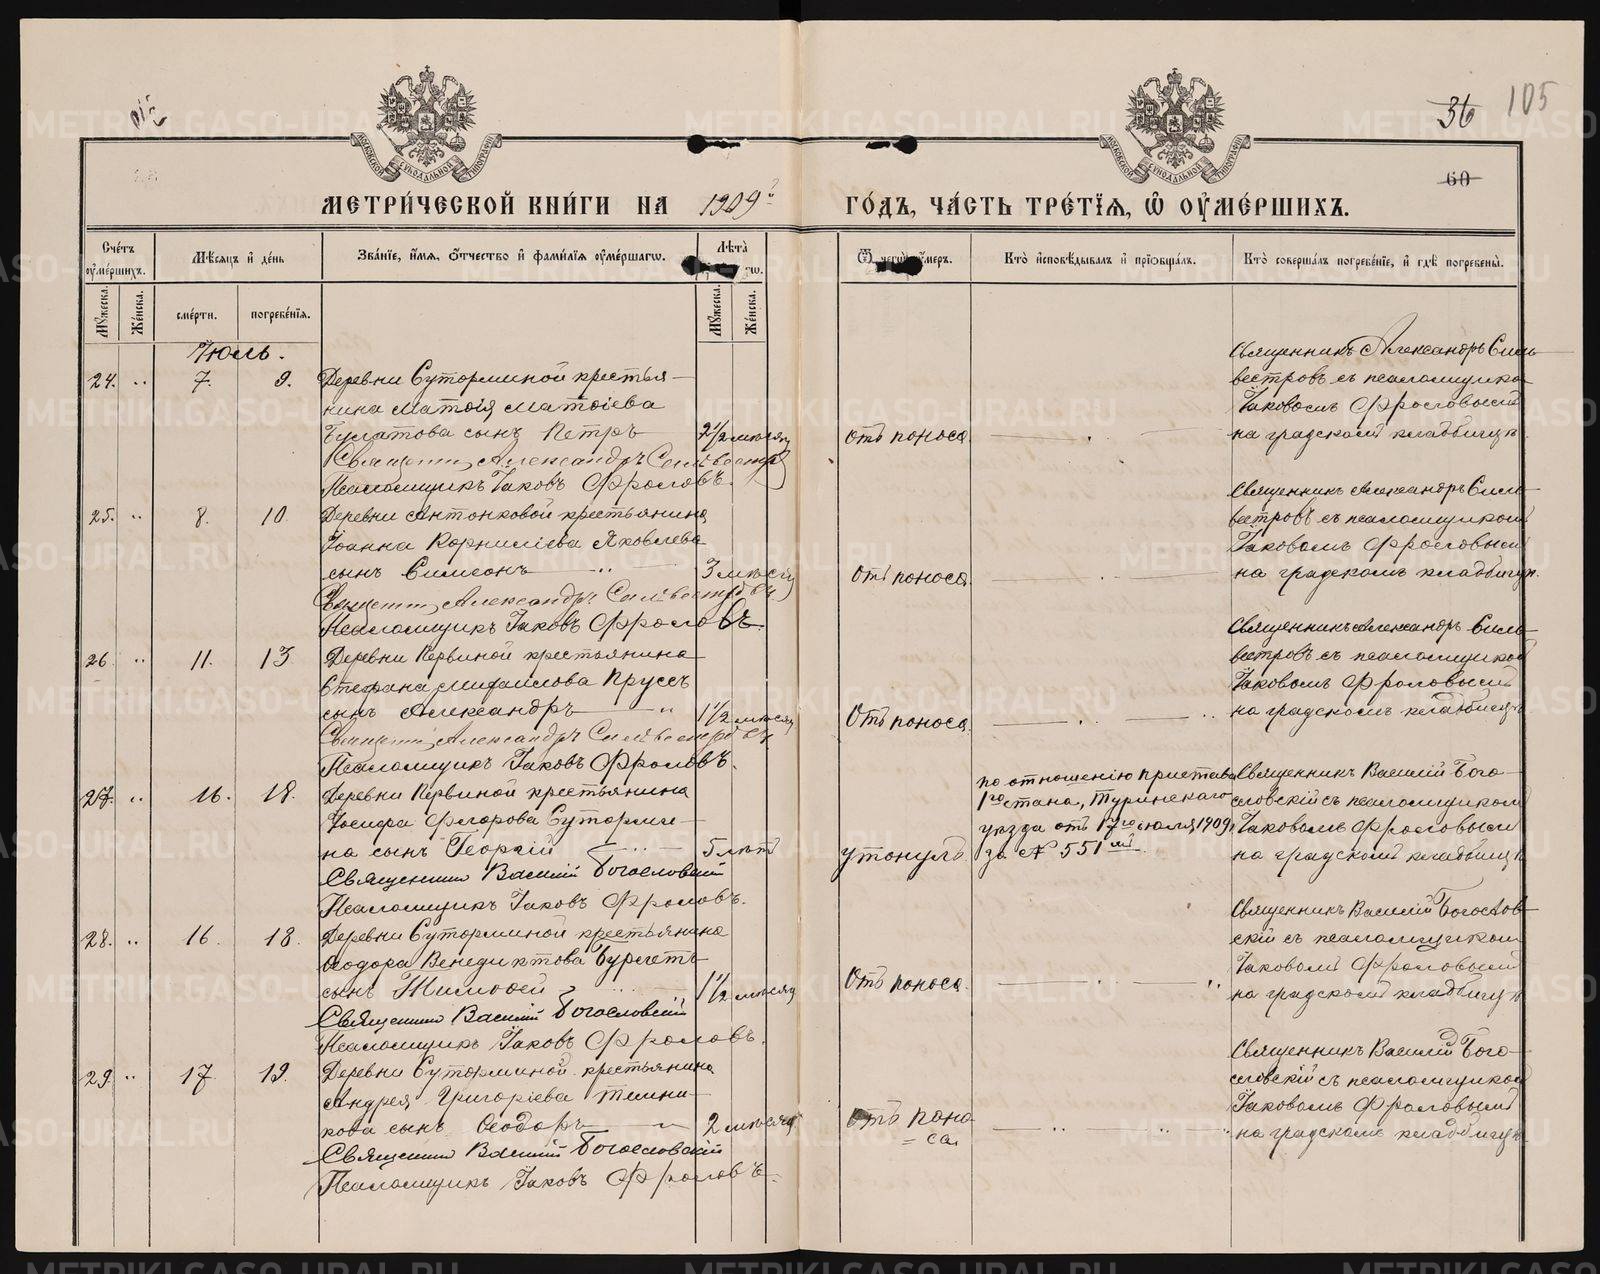 36 105
60
МЕТРИ́ЧЕСКОЙ КНИ́ГИ НА 1909й ГО́ДЪ, ЧА́СТЬ ТРЕ́ТЇѦ, Ѡ҆ ОУ҆МЕ́РШИХЪ.
Сче́тъ оу҆ме́ршихъ.
Мѣ́сѧцъ и҆ де́нь
Зва́нїе, и҆́мѧ, ѻ҆́тчество и҆ фами́лїѧ оу҆ме́ршагѡ.
Лѣ́та
Ѿ чегѡ̀ оу҆́меръ.
Кто̀ и҆сповѣ́дывалъ и҆ прїѡбща́лъ.
Кто̀ соверша́лъ погребе́нїе, и҆ гдѣ̀ погребены̀.
Мꙋ́жеска. Же́нска. сме́рти. погребе́нїѧ. Мꙋ́жеска. Же́нска.
Іюль.
24. " 7. 9. Деревни Суторминой крестья-
нина Матѳія Матѳіева
Булатова сынъ Петръ 2½ мѣсяц
Священ. Александръ Сильвестр
Псаломщикъ Іаковъ Фроловъ.
отъ поноса
Священникъ Александръ Силь-
вестровъ съ псаломщико
Іаковомъ Фроловымъ
на градскомъ кладбищѣ.
25. " 8. 10. Деревни Антонковой крестьянина
Іоанна Корниліева Яковлева
сынъ Симеонъ 3 мѣсяц
Священ. Александръ Сильвестровъ
Псаломщикъ Іаковъ Фроловъ.
Отъ поноса.
Священникъ Александръ Силь-
вестровъ съ псаломщикомъ
Іаковомъ Фроловымъ
на градскомъ кладбищѣ.
26. " 11. 13 Деревни Первиной крестьянина
Стефана Михаилова Прусъ
сынъ Александръ " 1½ мѣсяц
Священ. Александръ Сильвестровъ
Псаломщикъ Іаковъ Фроловъ.
Отъ поноса.
Священникъ Александръ Силь-
вестровъ съ псаломщикомъ
Іаковомъ Фроловымъ
на градскомъ кладбищѣ
27. " 16. 18. Деревни Первиной крестьянина
Іосифа Флорова Сутормин-
на сынъ Георгій 5 лѣтъ
Священник Василій Богословскій
Псаломщикъ Іаковъ Фроловъ.
утонулъ
по отношенію Пристава
1го стана, Туринскаго
уѣзда отъ 17го іюля 1909
за № 551мъ.
Священникъ Василій Бого-
словскій съ псаломщикомъ
Іаковомъ Фроловымъ
на градскомъ кладбищѣ
28. " 16. 18. Деревни Суторминой крестьянина
Ѳеодора Венедиктова Бургетъ
сынъ Тимоѳей 1½ мѣсяц
Священник Василій Богословскій
Псаломщикъ Іаковъ Фроловъ.
Отъ поноса.
Священникъ Василій Богослов-
скій съ псаломщикомъ
Іаковомъ Фроловымъ
на градскомъ кладбищѣ
29. " 17. 19. Деревни Суторминой крестьянина
Андрея Григоріева
кова сынъ Ѳеодоръ " 2 мѣсяца
Священник Василій Богословскій
Псаломщикъ Іаковъ Фроловъ.
Отъ поно-
са.
Священникъ Василій Бого-
словскій съ псаломщикомъ
Іаковомъ Фроловымъ
на градскомъ кладбищѣ
METRIKI.GASO-URAL.RU